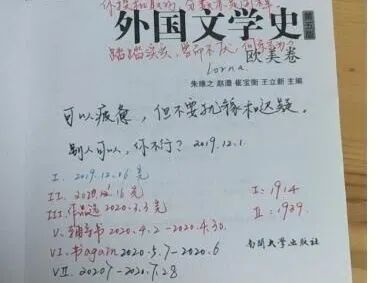 外国文学史
第五版
欧美卷
踏踏实实，
Lorna
朱维之 赵澧 崔宝衡 王立新 主编
可以疲惫，但不要犹豫和迟疑。
别人可以，你不行？2019.12.1
I. 2019.12.06 完
II. 2020.12.16 完
III. 作品选 2020.3.3 完
V. 辅导书 2020.4.2-2020.4.30.
VI. 书again 2020.5.7-2020.6
VII. 2020.7-2020.7.28
I: 1914
II: 1929.
南开大学出版社